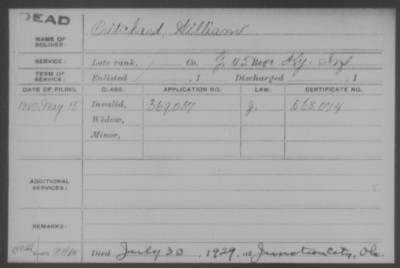 DEAD
NAME OF SOLDIER: Pritchard, William
SERVICE: Late rank, Co. 45 Regt Ky. Inf
TERM OF SERVICE: Enlisted , 1 Discharged , 1
DATE OF FILING. CLASS. APPLICATION NO. LAW. CERTIFICATE NO.
May 15 Invalid, 369,087 g.
Widow,
Minor,
ADDITIONAL SERVICES:
REMARKS:
Died July 30, 1929, at Junction City, Ok.